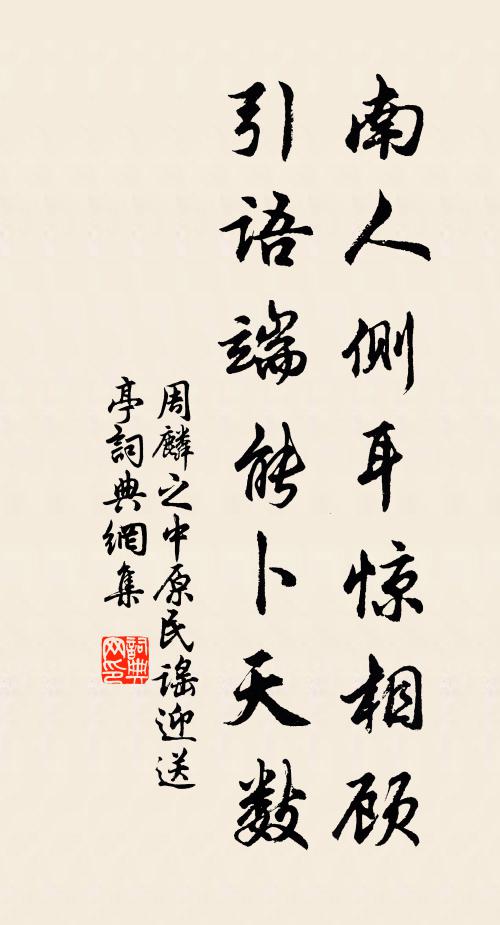 南人侧耳惊相顾
引语端能卜天数
周麟之中原民謠迎送
亭詞典網集
詞典網印